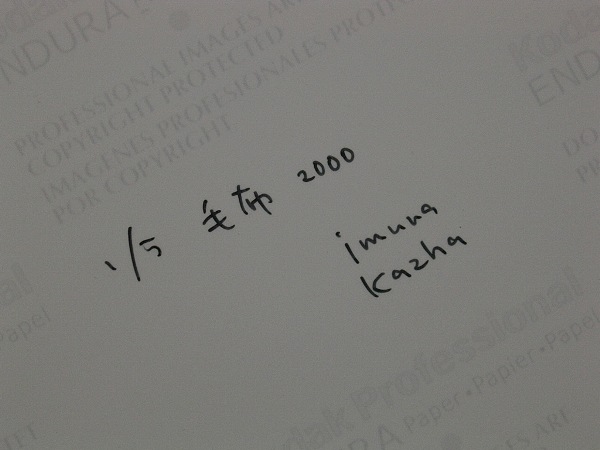 Kodak
ENDURA
PROFESSIONAL IMAGES ARE
COPYRIGHT PROTECTED
IMAGENES PROFESIONALES PROTE
POR COPYRIGHT
Kodak
ENDU
DO
PR
1/5 2000
imuna
Kazha
al
Papel
Kodak Professional
ENDURA Paper•Papier•Papel
ES ARE